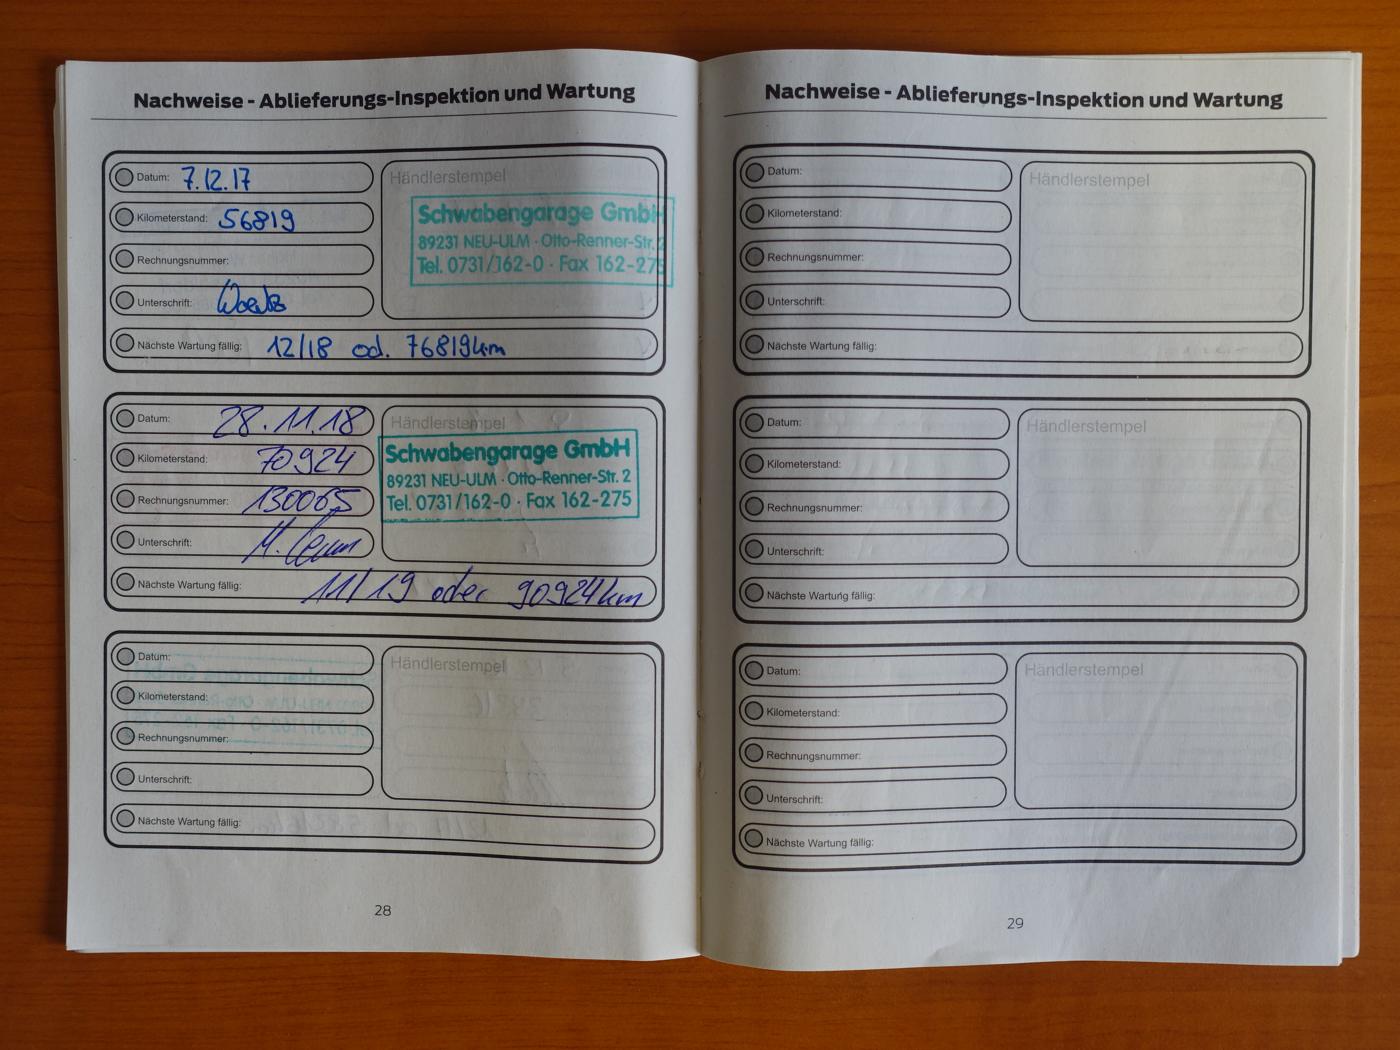 Nachweise - Ablieferungs-Inspektion und Wartung
Datum: 7.12.17
Kilometerstand: 56819
Rechnungsnummer:
Unterschrift:
Händlerstempel
Schwabengarage GmbH
89231 NEU-ULM · Otto-Renner-Str. 2
Tel. 0731/162-0 · Fax 162-275
Nächste Wartung fällig: 12/18 od. 76819km
Datum: 28.11.18
Kilometerstand: 70924
Rechnungsnummer: 130065
Unterschrift:
Händlerstempel
Schwabengarage GmbH
89231 NEU-ULM · Otto-Renner-Str. 2
Tel. 0731/162-0 · Fax 162-275
Nächste Wartung fällig: 11/19 oder 90924km
Datum:
Kilometerstand:
Rechnungsnummer:
Unterschrift:
Händlerstempel
Nächste Wartung fällig:
28
Nachweise - Ablieferungs-Inspektion und Wartung
Datum:
Kilometerstand:
Rechnungsnummer:
Unterschrift:
Händlerstempel
Nächste Wartung fällig:
Datum:
Kilometerstand:
Rechnungsnummer:
Unterschrift:
Händlerstempel
Nächste Wartung fällig:
Datum:
Kilometerstand:
Rechnungsnummer:
Unterschrift:
Händlerstempel
Nächste Wartung fällig:
29